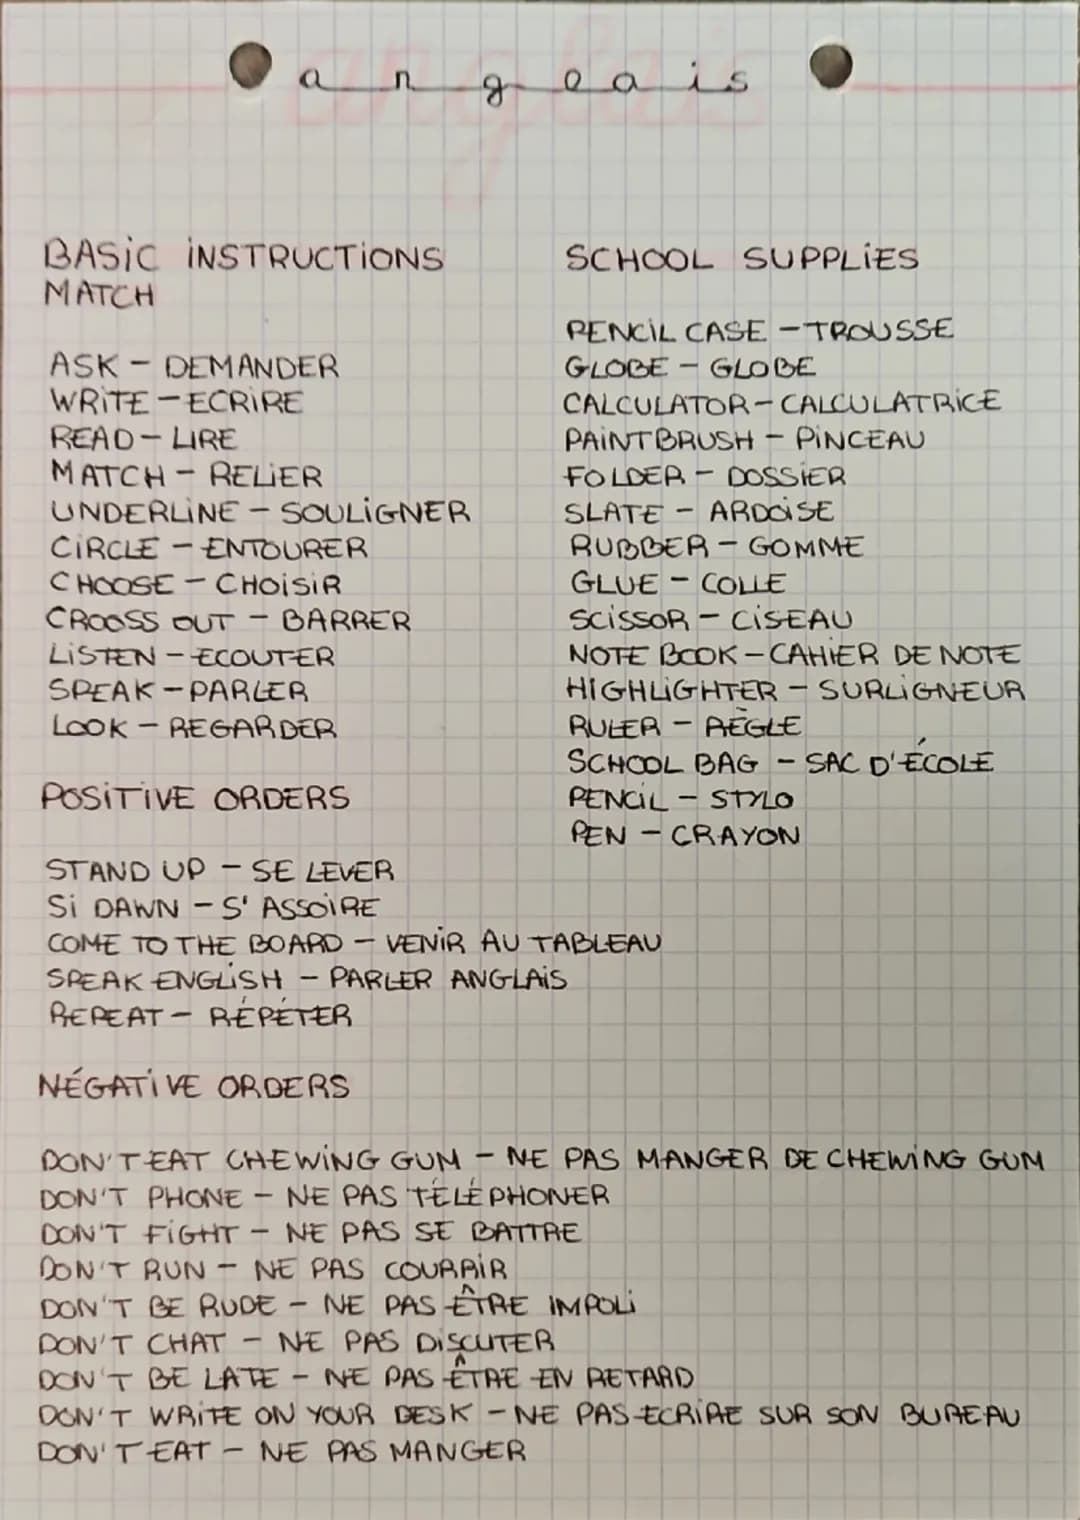 anglais
BASIC INSTRUCTIONS
MATCH
ASK - DEMANDER
WRITE - ECRIRE
READ - LIRE
MATCH - RELIER
UNDERLINE - SOULIGNER
CIRCLE - ENTOURER
CHOOSE - CHOISIR
CROOSS OUT - BARRER
LISTEN - ECOUTER
SPEAK - PARLER
LOOK - REGARDER
POSITIVE ORDERS
STAND UP - SE LEVER
SI DAWN - S' ASSOIRE
COME TO THE BOARD - VENIR AU TABLEAU
SPEAK ENGLISH - PARLER ANGLAIS
REPEAT - RÉPÉTER
NÉGATIVE ORDERS
DON'T EAT CHEWING GUM - NE PAS MANGER DE CHEWING GUM
DON'T PHONE - NE PAS TÉLÉPHONER
DON'T FIGHT - NE PAS SE BATTRE
DON'T RUN - NE PAS COURRIR
DON'T BE RUDE - NE PAS ÊTRE IMPOLI
DON'T CHAT - NE PAS DISCUTER
DON'T BE LATE - NE PAS ÊTRE EN RETARD
DON'T WRITE ON YOUR DESK - NE PAS ECRIRE SUR SON BUREAU
DON'T EAT - NE PAS MANGER
SCHOOL SUPPLIES
PENCIL CASE - TROUSSE
GLOBE - GLOBE
CALCULATOR - CALCULATRICE
PAINTBRUSH - PINCEAU
FOLDER - DOSSIER
SLATE - ARDOISE
RUBBER - GOMME
GLUE - COLLE
SCISSOR - CISEAU
NOTE BOOK - CAHIER DE NOTE
HIGHLIGHTER - SURLIGNEUR
RULER - RÈGLE
SCHOOL BAG - SAC D'ÉCOLE
PENCIL - STYLO
PEN - CRAYON